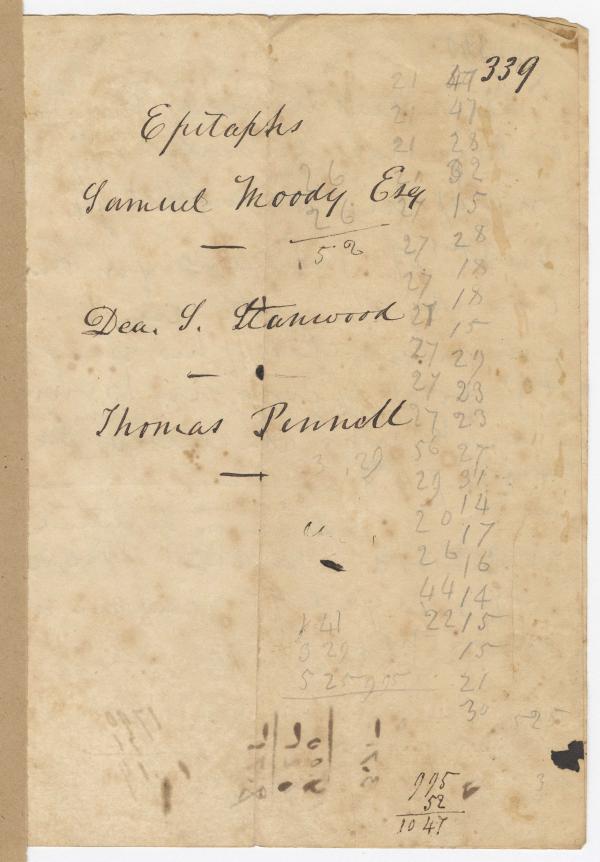 339
Epitaphs
Samuel Moody Esq
Dea. S. Stanwood
Thomas Pennell
26
26
52
21 47
21 47
21 28
32
27 15
27 28
27 18
27 18
27 15
27 29
27 23
27 23
56 27
29 31
14
20 17
26 16
44 14
22 15
15
21
30
3 29
141
329
525 995
525
995
52
1047